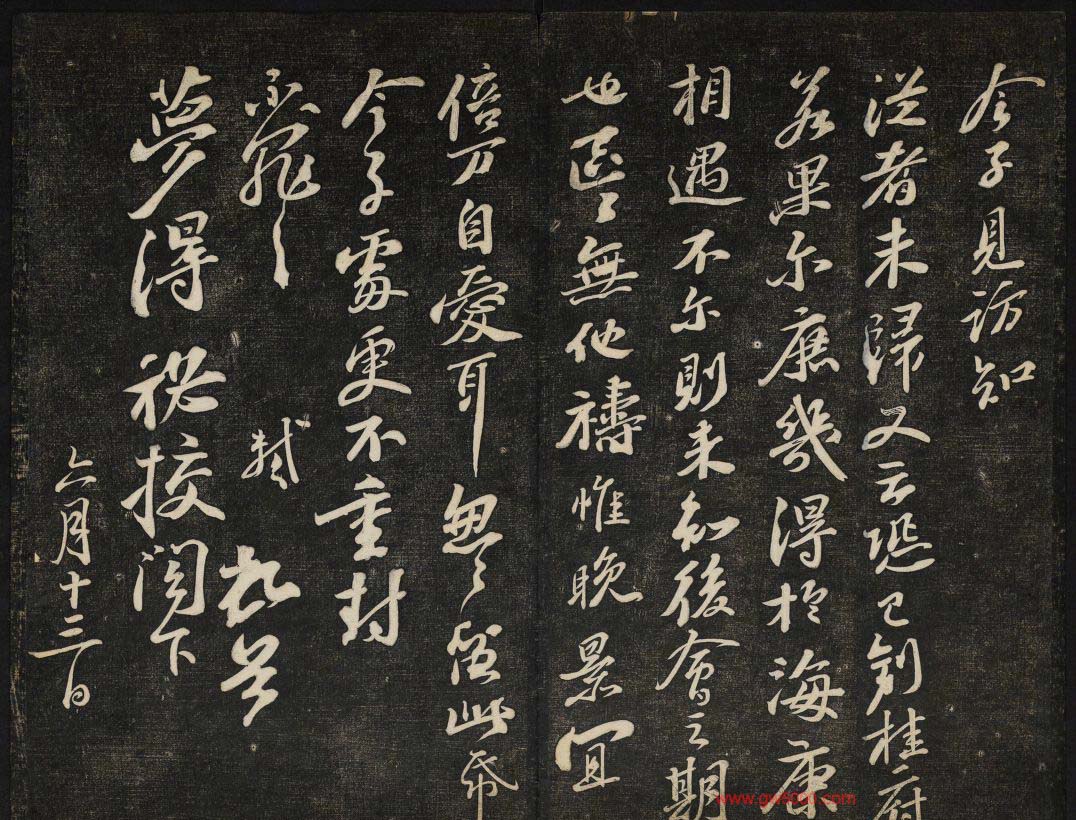 令子見訪知
從者未歸又云恐已到桂府
若果尔庶幾得於海康
相遇不尔則未知後會之期
也區〻無他禱惟晚景宜
倍万自愛耳忽〻留此帋
令子處更不重封
不罪〻 軾 頓首
夢得祕挍閣下
六月十三日